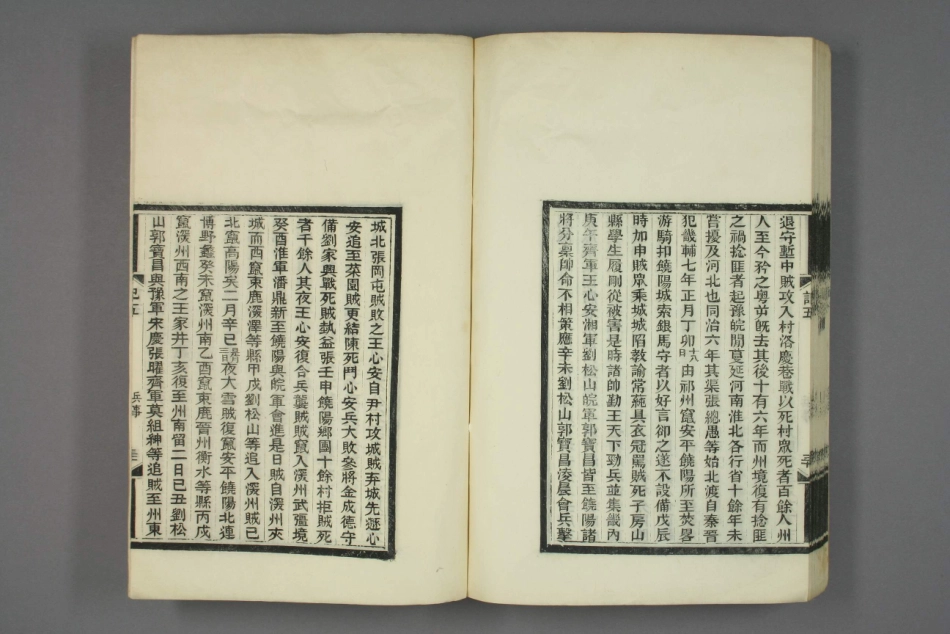 退守塹中賊攻入村洛慶巷戰以死村眾死者百餘人州
人至今矜之粵匪既去其後十有六年而州境復有捻匪
之禍捻匪者起豫皖閒蔓延河南淮北各行省十餘年未
嘗擾及河北也同治六年其渠張總愚等始北渡自秦晉
犯畿輔七年正月丁卯十八日由祁州竄安平饒陽所至焚畧
游騎抑饒陽城索銀馬守者以好言卻之遂不設備戊辰
時加申賊眾乘城城陷敎諭常蕤具衣冠罵賊死子房山
縣學生履剛從被害是時諸帥勤王天下勁兵並集畿內
庚午齊軍王心安湘軍劉松山皖軍郭寶昌皆至饒陽諸
將分稟帥命不相策應辛未劉松山郭寶昌淩晨會兵擊
城北張岡屯賊敗之王心安自尹村攻城賊弃城先遁心
安追至菜園賊更結陳死鬥心安兵大敗參將金成德守
備劉家興戰死賊執益張壬申饒陽鄉團十餘村拒賊死
者千餘人其夜王心安復合兵襲賊賊竄入深州武彊境
癸酉淮軍潘鼎新至饒陽與皖軍會進是日賊自深州夾
城而西竄束鹿深澤等縣甲戌劉松山等追入深州賊已
北竄高陽矣二月辛巳是月三日夜大雪賊復竄安平饒陽北連
博野蠡癸未竄深州南乙酉竄束鹿晉州衡水等縣丙戌
竄深州西南之王家井丁亥復至州南留二日己丑劉松
山郭寶昌與豫軍宋慶張曜齊軍莫組紳等追賊至州東
記五
兵事